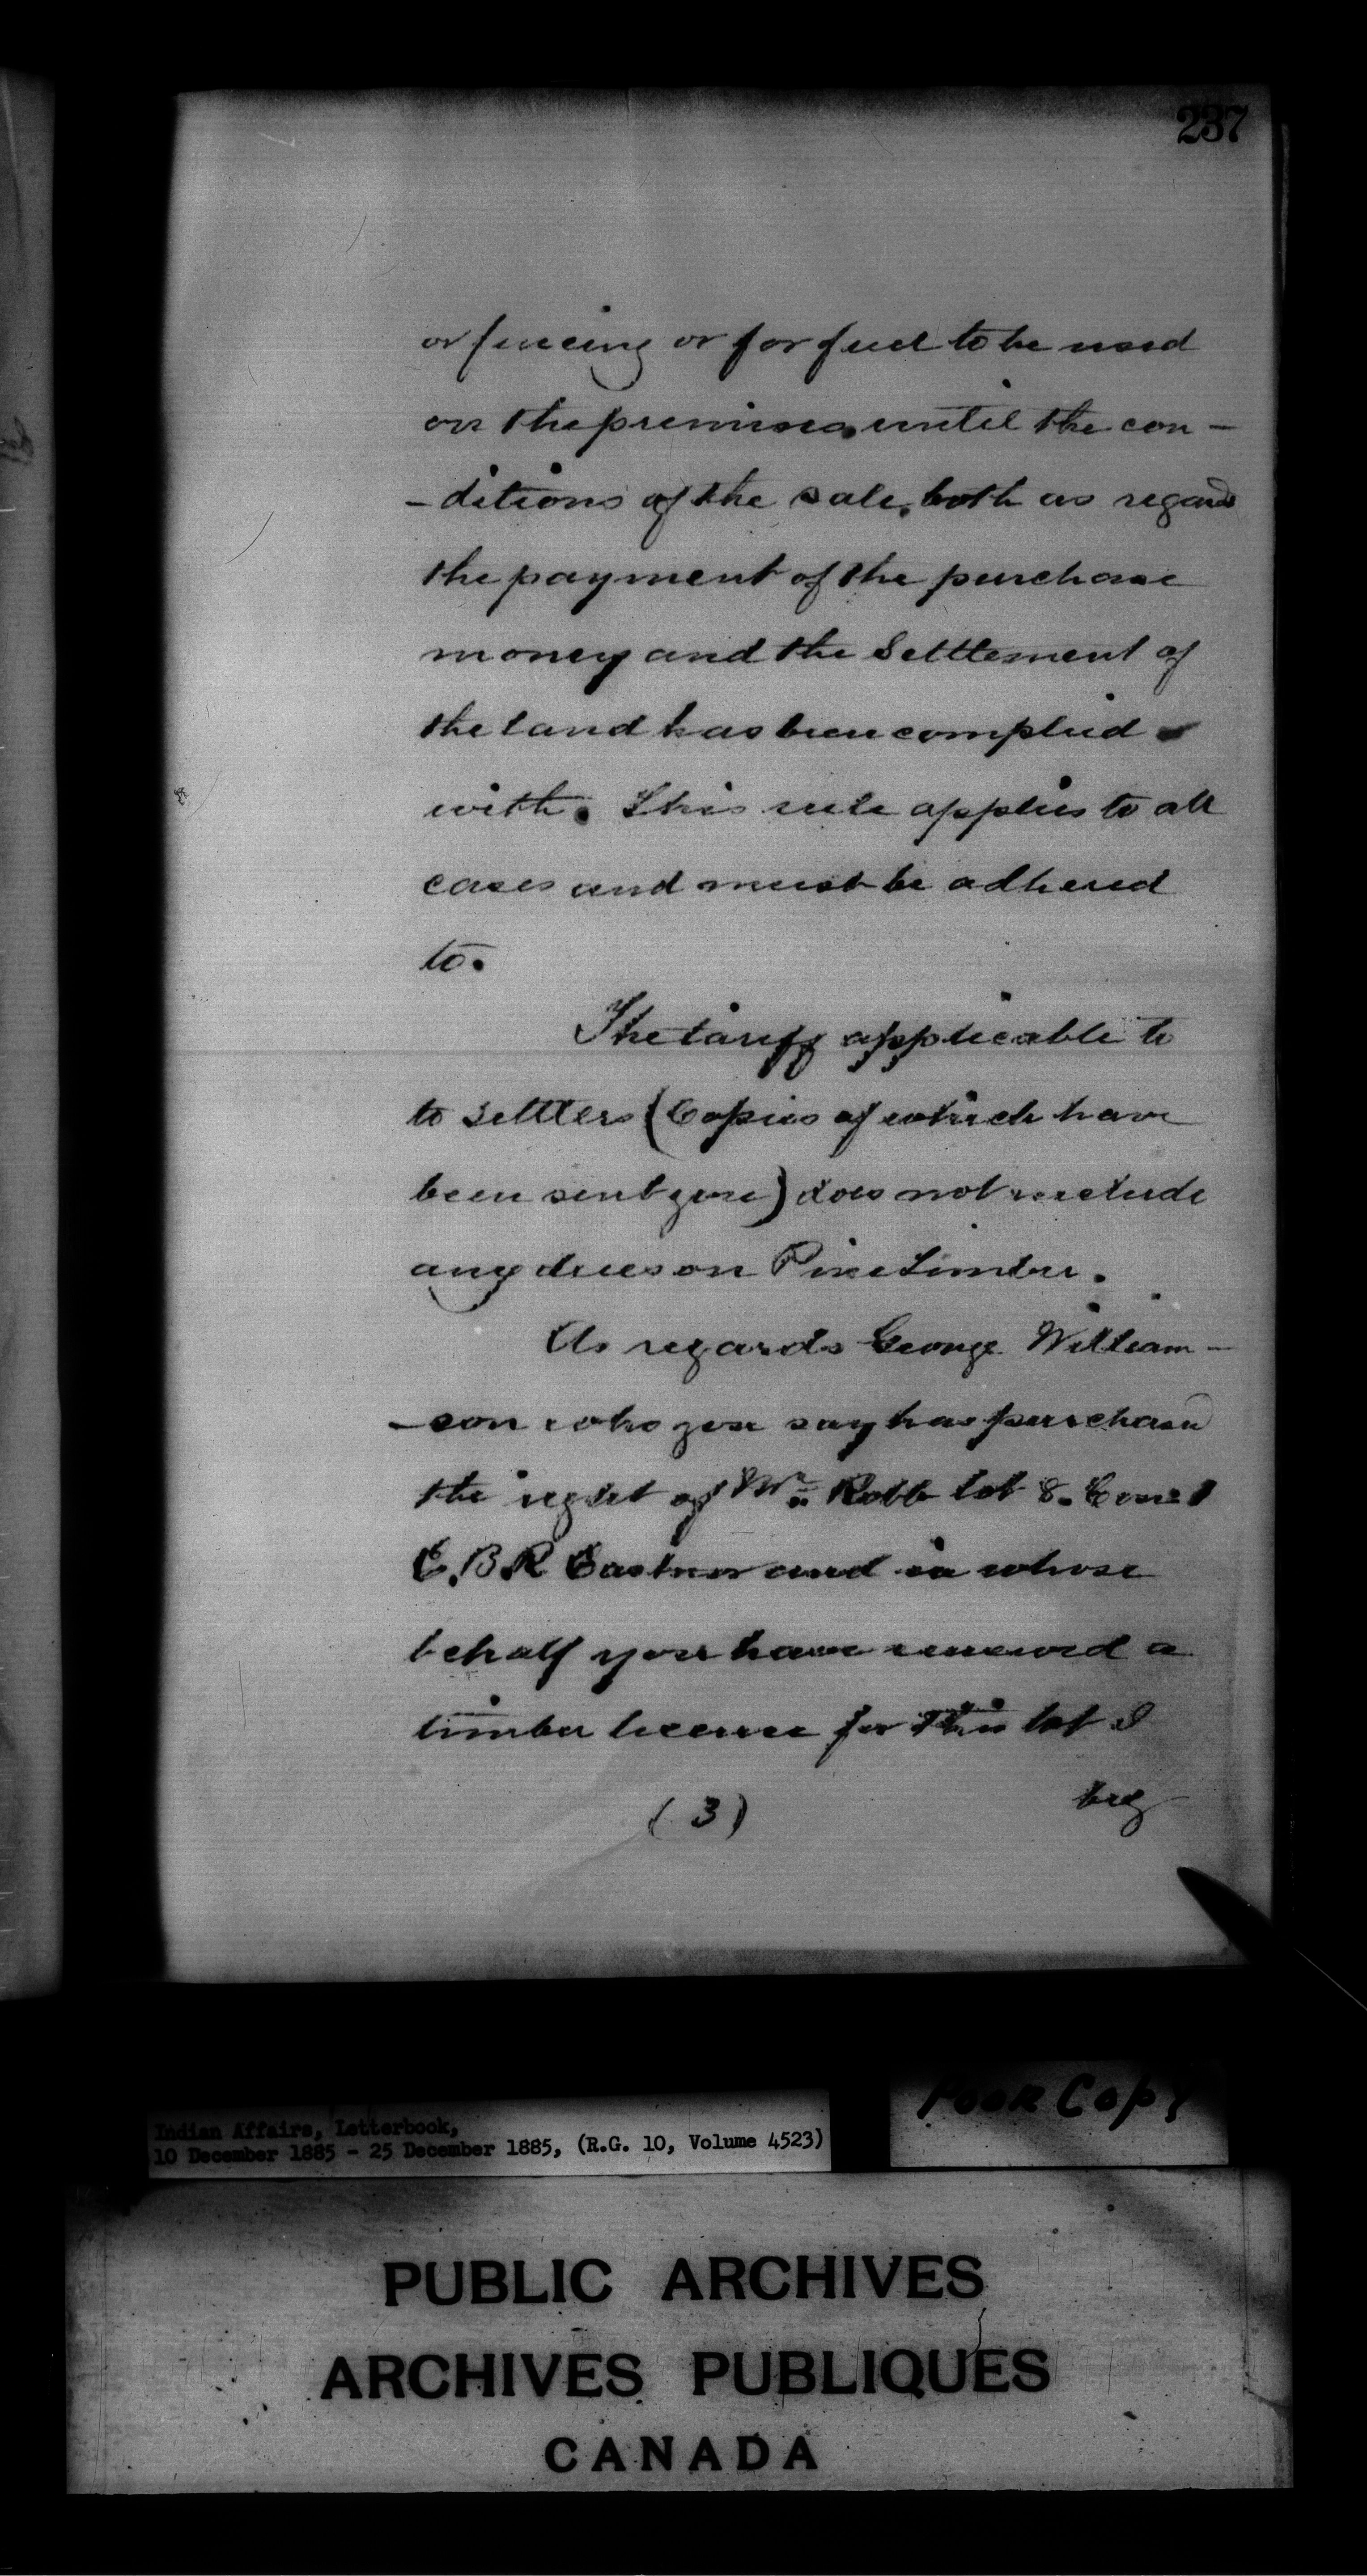 237
or fencing or for fuel to be used
on the premises, until the con-
-ditions of the sale, both as regards
the payment of the purchase
money and the Settlement of
the land has been complied
with. This rule applies to all
cases and must be adhered
to.
The tariff applicable to
to settlers (Copies of which have
been sent you) does not include
any dues on Pine Timber.
As regards George William-
-son who you say has purchased
the right of Wm. Robb lot 8. Con: 1
E.B.R Eastnor and in whose
behalf you have renewed a
timber license for this lot I
(3) beg
Indian Affairs, Letterbook,
10 December 1885 - 25 December 1885, (R.G. 10, Volume 4523)
Poor Copy
PUBLIC ARCHIVES
ARCHIVES PUBLIQUES
CANADA